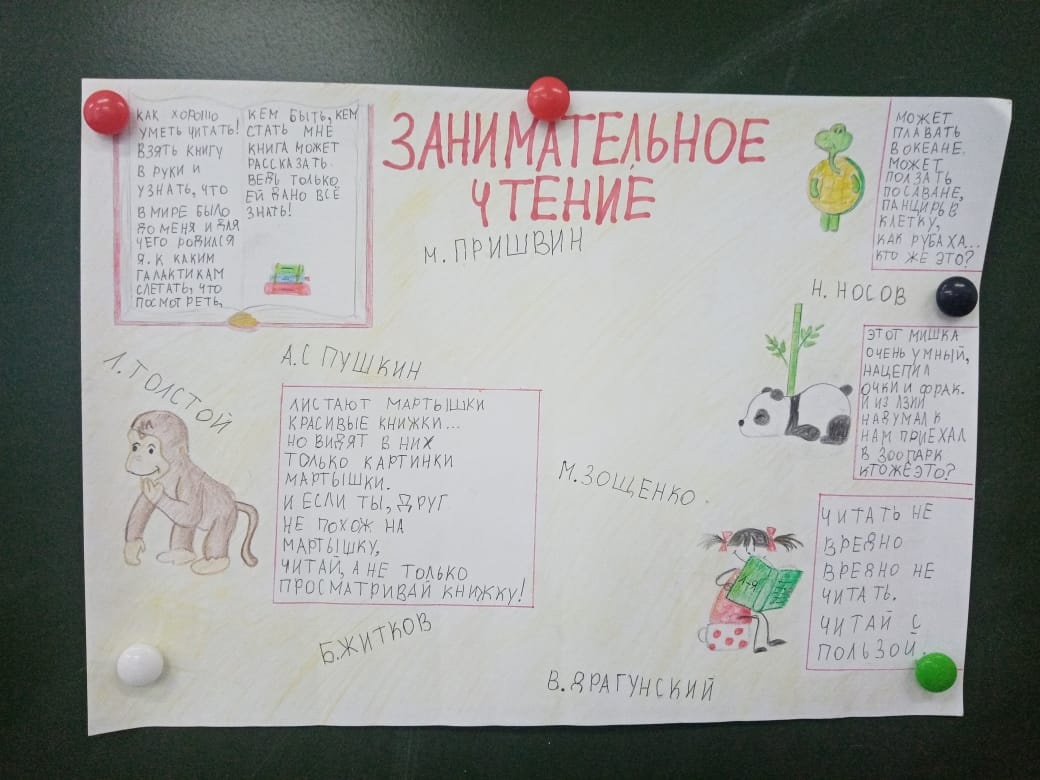 ЗАНИМАТЕЛЬНОЕ
ЧТЕНИЕ
КАК ХОРОШО
УМЕТЬ ЧИТАТЬ!
ВЗЯТЬ КНИГУ
В РУКИ И
УЗНАТЬ, ЧТО
В МИРЕ БЫЛО
ДО МЕНЯ И ДЛЯ
ЧЕГО РОДИЛСЯ
Я. К КАКИМ
ГАЛАКТИКАМ
СЛЕТАТЬ, ЧТО
ПОСМОТРЕТЬ,
КЕМ БЫТЬ, КЕМ
СТАТЬ МНЕ
КНИГА МОЖЕТ
РАССКАЗАТЬ.
ВЕДЬ ТОЛЬКО
ЕЙ ДАНО ВСЁ
ЗНАТЬ!
М. ПРИШВИН
МОЖЕТ
ПЛАВАТЬ
В ОКЕАНЕ.
МОЖЕТ
ПОЛЗАТЬ
ПО САВАНЕ,
ПАНЦИРЬ В
КЛЕТКУ,
КАК РУБАХА...
КТО ЖЕ ЭТО?
Н. НОСОВ
Л. ТОЛСТОЙ
А.С ПУШКИН
ЛИСТАЮТ МАРТЫШКИ
КРАСИВЫЕ КНИЖКИ...
НО ВИДЯТ В НИХ
ТОЛЬКО КАРТИНКИ
МАРТЫШКИ.
И ЕСЛИ ТЫ, ДРУГ
НЕ ПОХОЖ НА
МАРТЫШКУ,
ЧИТАЙ, А НЕ ТОЛЬКО
ПРОСМАТРИВАЙ КНИЖКУ!
ЭТОТ МИШКА
ОЧЕНЬ УМНЫЙ,
НАЦЕПИЛ
ОЧКИ И ФРАК.
И ИЗ АЗИИ
НАДУМАЛ К
НАМ ПРИЕХАЛ
В ЗООПАРК
КТО ЖЕ ЭТО?
М. ЗОЩЕНКО.
А-Я
ЧИТАТЬ НЕ
ВРЕДНО
ВРЕДНО НЕ
ЧИТАТЬ.
ЧИТАЙ С
ПОЛЬЗОЙ.
Б. ЖИТКОВ
В. ДРАГУНСКИЙ